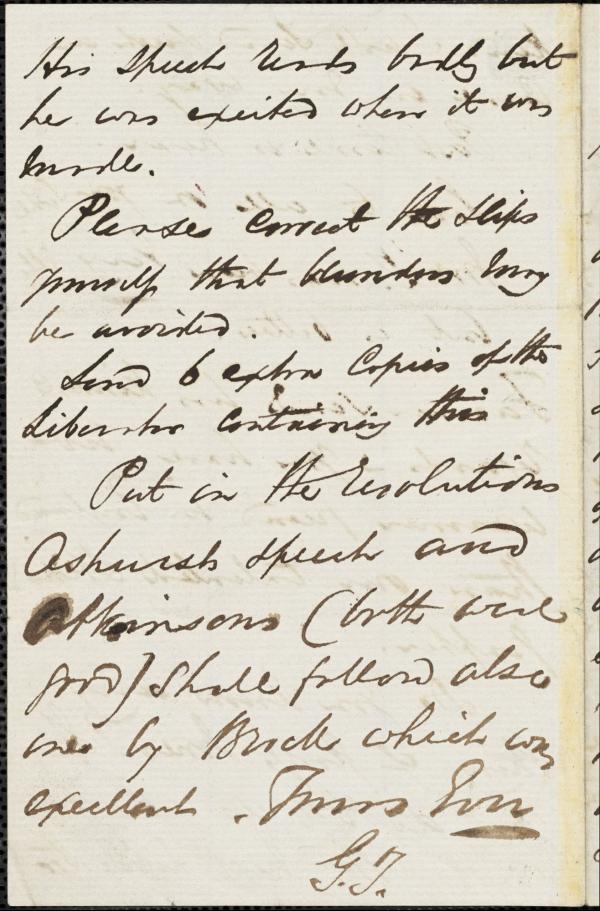 His speech reads badly but
he was excited when it was
made.
Please correct the slips
yourself that blunders may
be avoided.
Send 6 extra Copies of the
Liberator containing this
Put in the resolutions
Ashursts speech and
Atkinsons (both were
good) Shall follow also
one by Brock which was
excellent. Yours Ever
G.T.